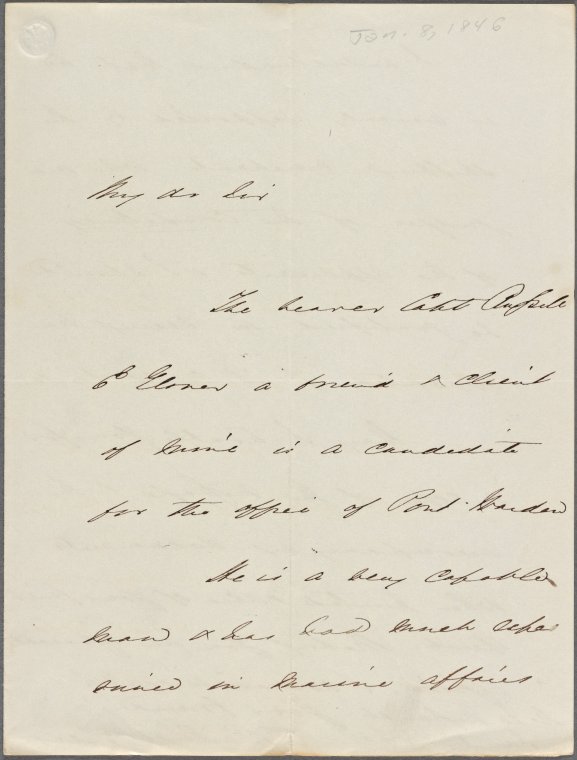 Jan. 8, 1846
My dr Sir
The bearer Capt Russell
E Glover a friend & client
of mine is a candidate
for the office of Port Warden
He is a very capable
man & has had much expe
rience in marine affairs